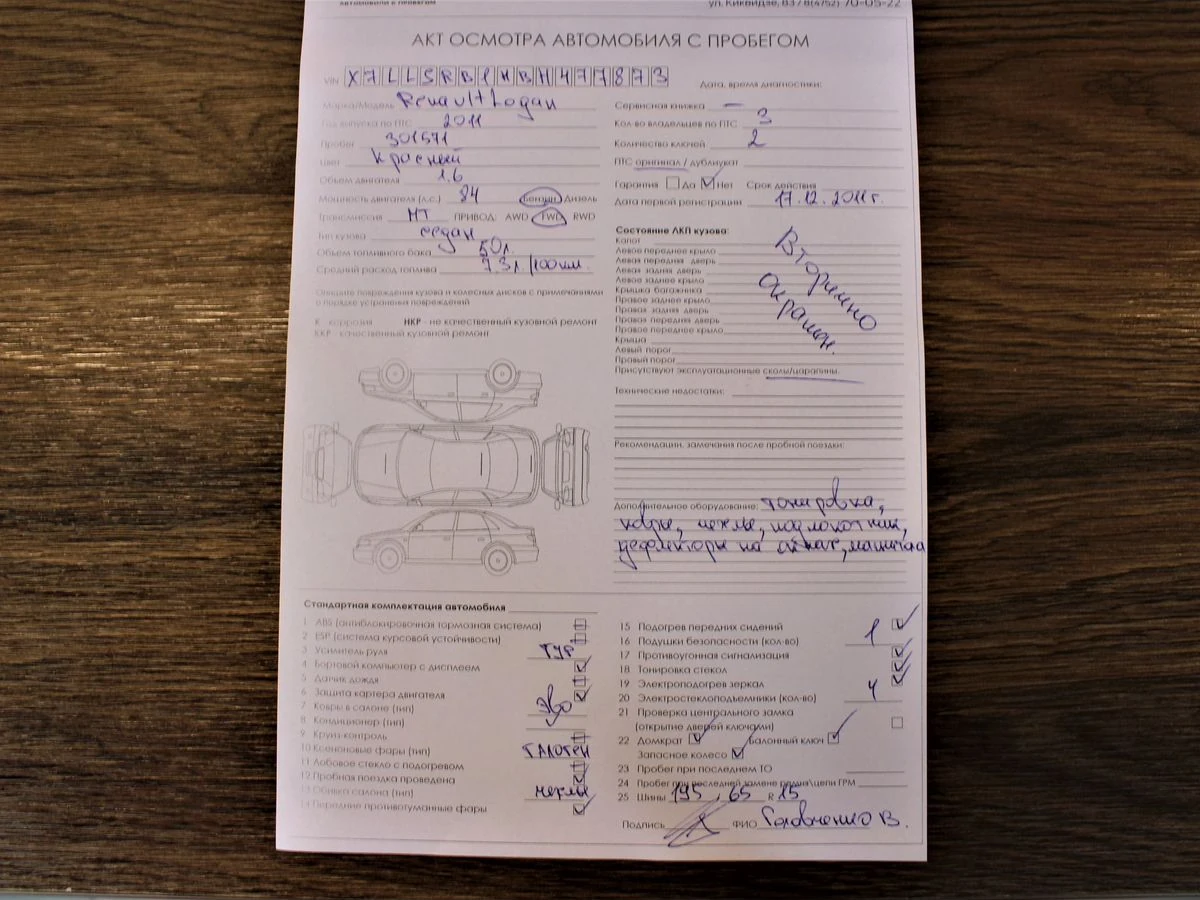 АВТОМОБИЛИ С ПРОБЕГОМ
ул. Киквидзе, 83 / 8(4752) 70-05-22
АКТ ОСМОТРА АВТОМОБИЛЯ С ПРОБЕГОМ
VIN
Дата, время диагностики:
Марка/Модель Renault Logan
Год выпуска по ПТС 2011
Пробег 301571
Цвет Красный
Объем двигателя 1.6
Мощность двигателя (л.с.) 84 Бензин Дизель
Трансмиссия МТ ПРИВОД: AWD FWD RWD
Тип кузова Седан
Объем топливного бака 50л
Средний расход топлива 7.3л/100км.
Опишите повреждения кузова и колесных дисков с примечаниями
о порядке устранения повреждений
К - коррозия НКР - не качественный кузовной ремонт
ККР - качественный кузовной ремонт
Сервисная книжка —
Кол-во владельцев по ПТС 3
Количество ключей 2
ПТС оригинал / дубликат
Гарантия Да Нет Срок действия
Дата первой регистрации 17.12.2011г.
Состояние ЛКП кузова:
Капот
Левое переднее крыло
Левая передняя дверь
Левая задняя дверь
Левое заднее крыло
Крышка багажника
Правое заднее крыло
Правая задняя дверь
Правая передняя дверь
Правое переднее крыло
Крыша
Левый порог
Правый порог
Вторично
окрашен.
Присутствуют эксплуатационные сколы/царапины.
Технические недостатки:
Рекомендации, замечания после пробной поездки:
Дополнительное оборудование: тонировка,
ковры, чехлы, подлокотник,
дефлекторы на окнах,
Стандартная комплектация автомобиля
1 ABS (антиблокировочная тормозная система)
2 ESP (система курсовой устойчивости)
3 Усилитель руля ГУР
4 Бортовой компьютер с дисплеем
5 Датчик дождя
6 Защита картера двигателя
7 Ковры в салоне (тип) Эво
8 Кондиционер (тип)
9 Круиз-контроль
10 Ксеноновые фары (тип) ГАЛОГЕН
11 Лобовое стекло с подогревом
12 Пробная поездка проведена
13 Обивка салона (тип) чехлы
14 Передние противотуманные фары
15 Подогрев передних сидений
16 Подушки безопасности (кол-во) 1
17 Противоугонная сигнализация
18 Тонировка стекол
19 Электроподогрев зеркал
20 Электростеклоподъемники (кол-во) 4
21 Проверка центрального замка
(открытие дверей ключами)
22 Домкрат Балонный ключ
Запасное колесо
23 Пробег при последнем ТО
24 Пробег при последней замене ремня\цепи ГРМ
25 Шины 195 65 R 15
Подпись ФИО Головченко В.